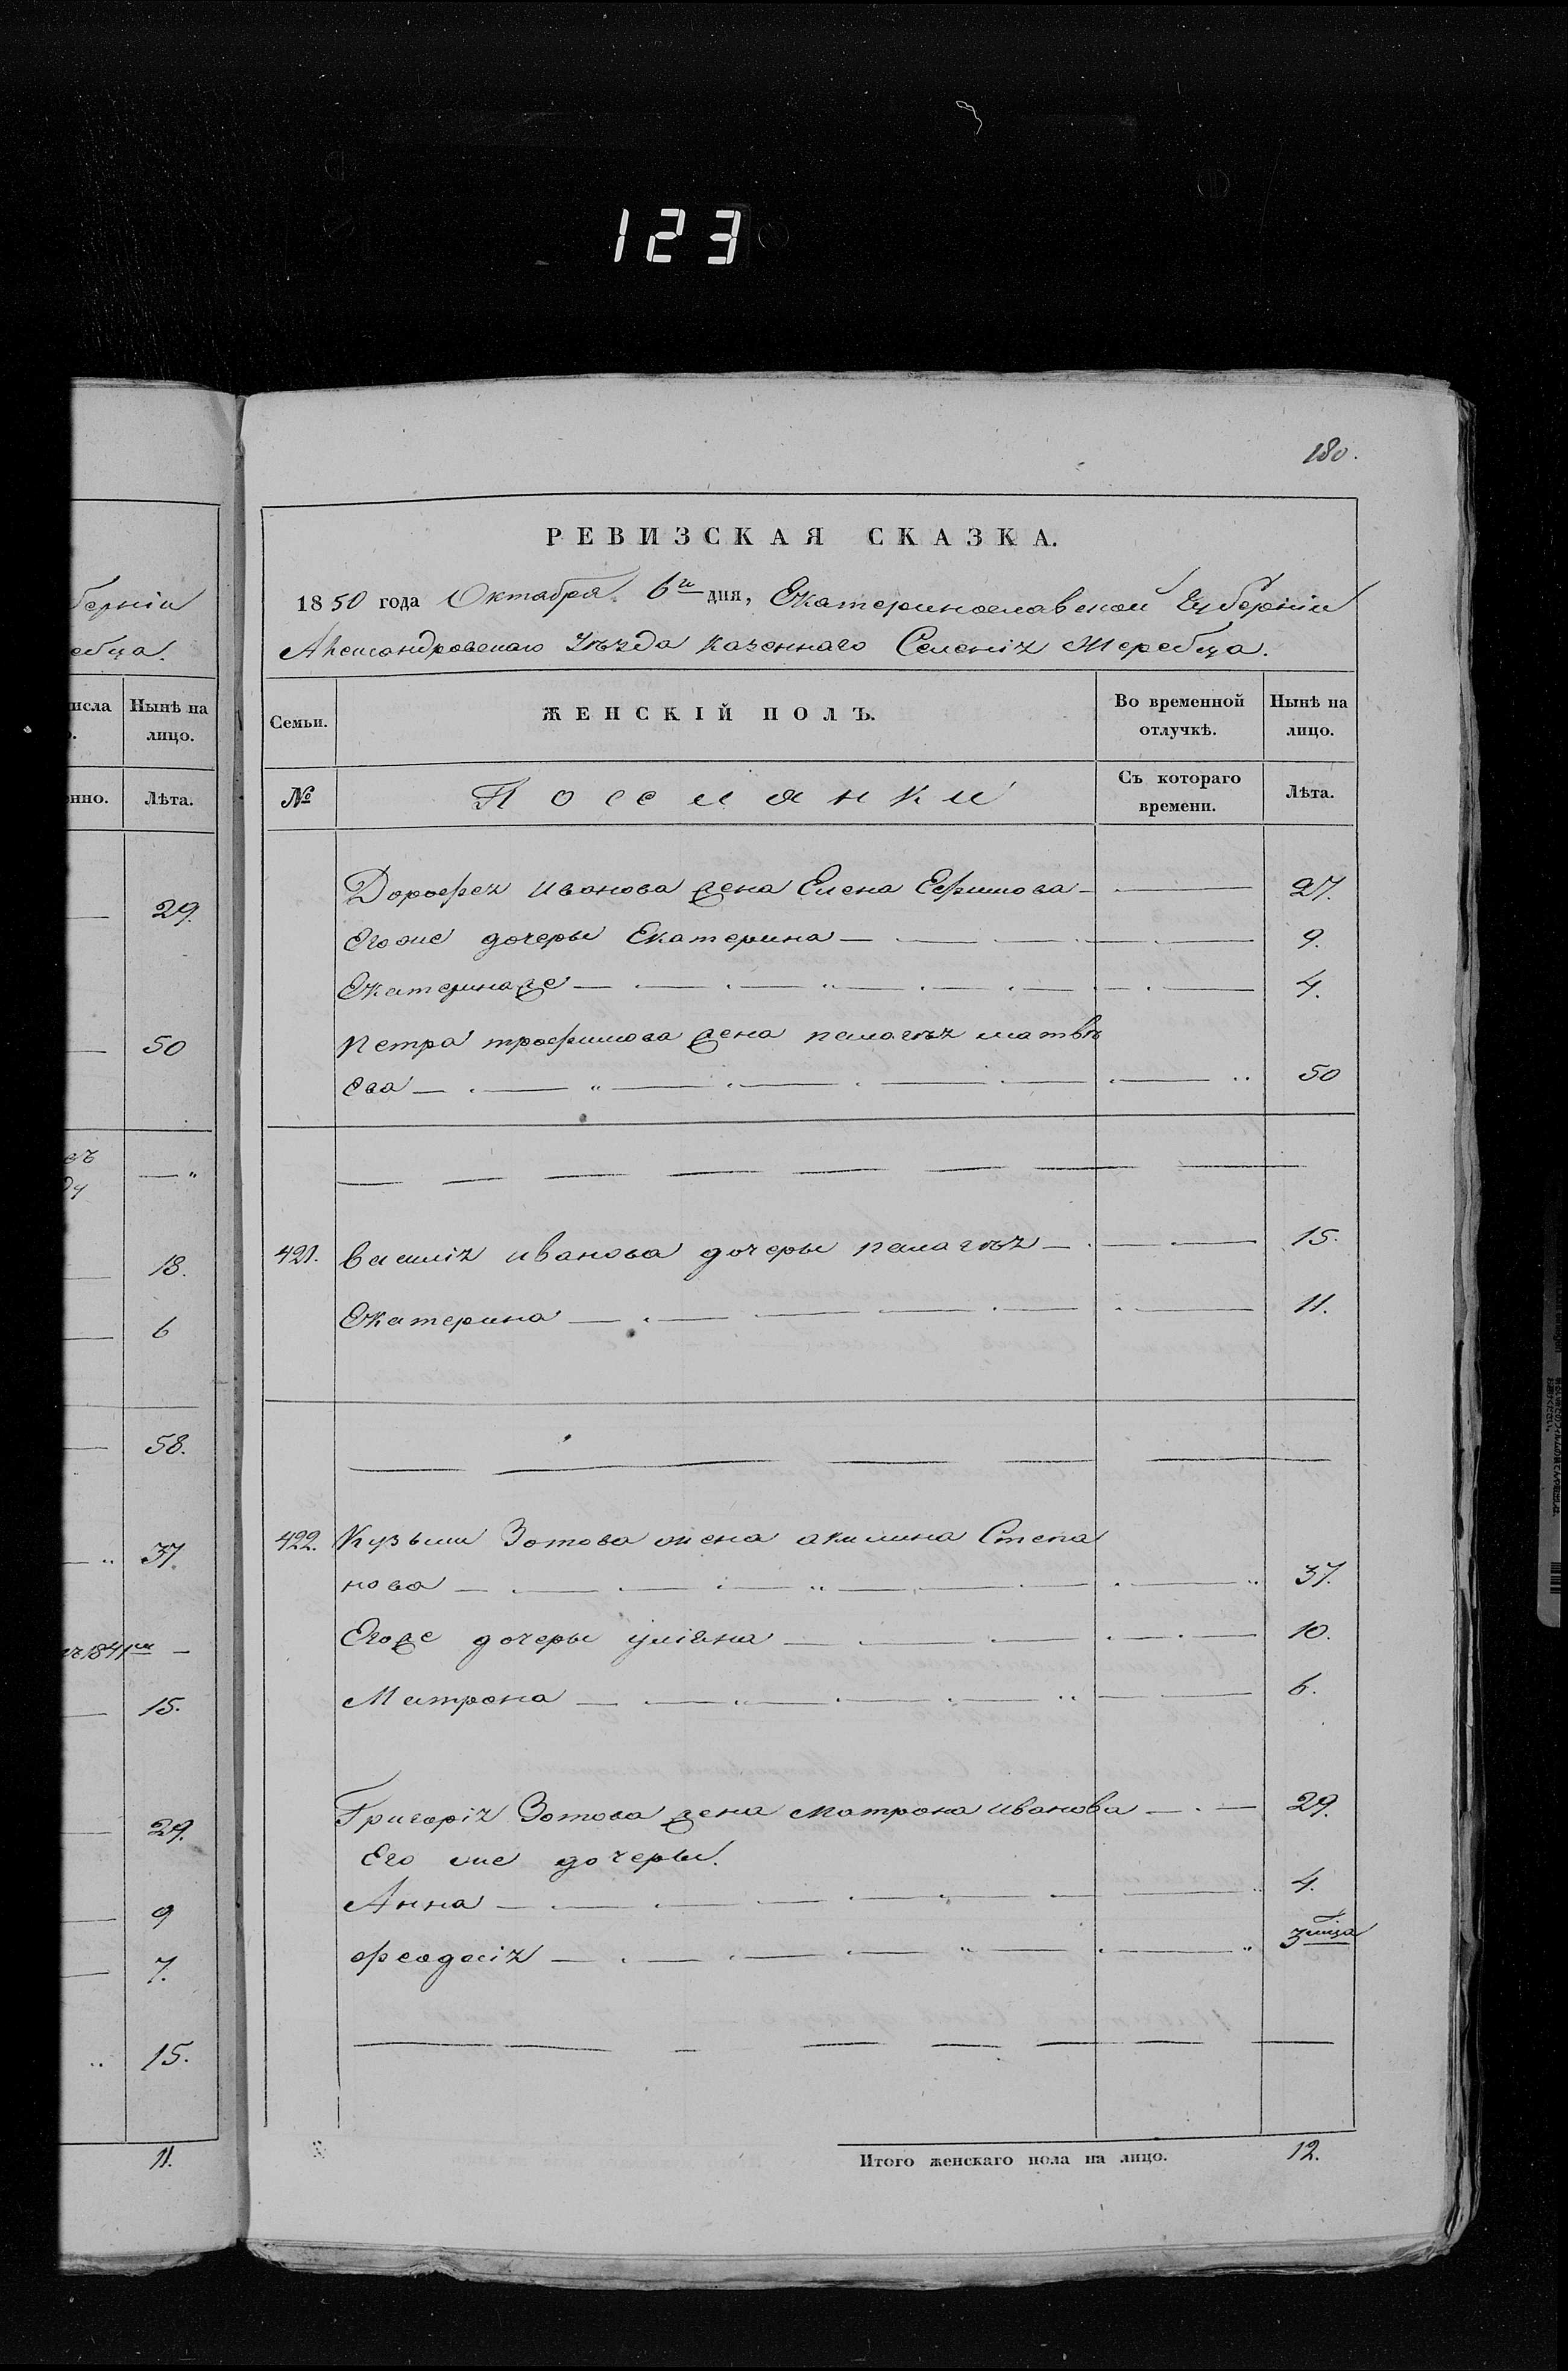 123
180.
РЕВИЗСКАЯ СКАЗКА.
1850 года Октября 6го дня, Екатеринославской Губерніи
Александровскаго Уѣзда казеннаго Селенія Жеребца.
Семьи.
ЖЕНСКІЙ ПОЛЪ.
Во временной отлучкѣ.
Нынѣ на лицо.
№
Поселянки
Съ котораго времени.
Лѣта.
Дорофея иванова жена Елена Ефимова 27.
Егоже дочеры Екатерина 9.
Екатерина же 4.
Петра трофимова жена пелагѣя матвѣ
ева 50
421. василія иванова дочеры пелагѣя 15.
Екатерина 11.
422. Кузьми Зотова жена акилина Степа
нова 37.
Егоже дочеры уліяна 10.
Матрона 6.
Григорія Зотова жена матрона иванова 29.
Его же дочеры.
Анна 4.
феодосія 3 мѣца
Итого женскаго пола на лицо. 12.
берніи
ебца.
числа
Нынѣ на лицо.
Лѣта.
29.
50
18.
6
58.
37.
1841
15.
29.
9
7.
15.
11.